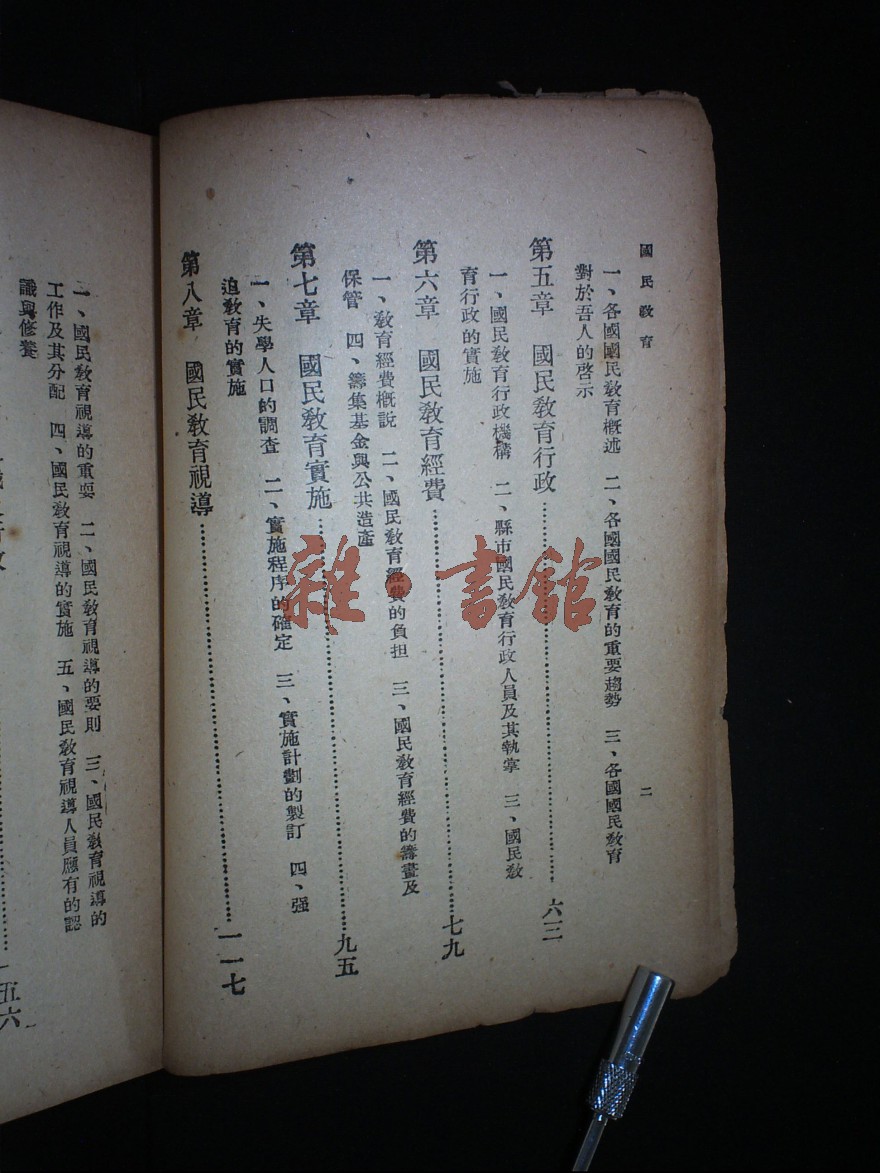 國民教育
二
一、各國國民教育概述　二、各國國民教育的重要趨勢　三、各國國民教育
對於吾人的啓示
第五章　國民教育行政……………六三
一、國民教育行政機構　二、縣市國民教育行政人員及其執掌　三、國民教
育行政的實施
第六章　國民教育經費……………七九
一、教育經費概說　二、國民教育經費的負担　三、國民教育經費的籌畫及
保管　四、籌集基金與公共造產
第七章　國民教育實施……………九五
一、失學人口的調查　二、實施程序的確定　三、實施計劃的製訂　四、强
迫教育的實施
第八章　國民教育視導……………一一七
一、國民教育視導的重要　二、國民教育視導的要則　三、國民教育視導的
工作及其分配　四、國民教育視導的實施　五、國民教育視導人員應有的認
識與修養
五六
雜·書館